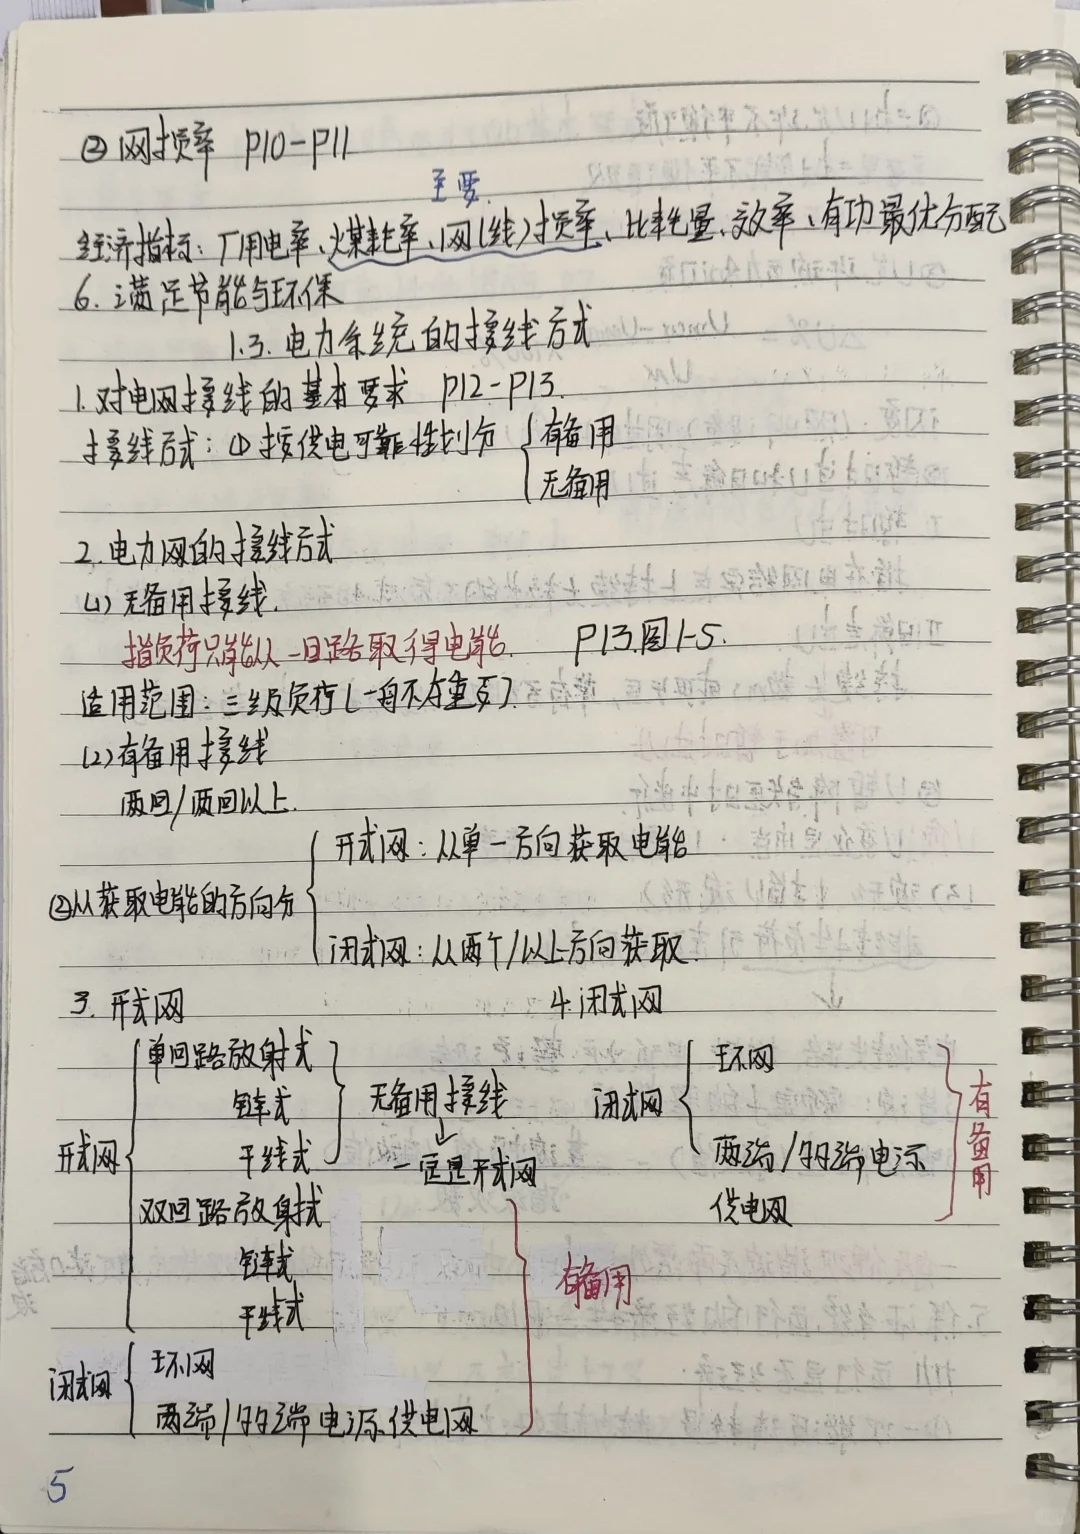 ②网损率 P10-P11
主要
经济指标：厂用电率、煤耗率、网(线)损率、比耗量、效率、有功最优分配
6.满足节能与环保
1.3.电力系统的接线方式
1.对电网接线的基本要求 P12-P13.
接线方式：①按供电可靠性划分
有备用
无备用
2.电力网的接线方式
(1)无备用接线.
指负荷只能从一回路取得电能. P13.图1-5.
适用范围：三级负荷(一般不太重要).
(2)有备用接线
两回/两回以上.
②从获取电能的方向分
开式网：从单一方向获取电能
闭式网：从两个/以上方向获取.
3.开式网 4.闭式网
开式网
单回路放射式
链式
干线式
无备用接线
↓
一定是开式网
双回路放射式
链式
干线式
闭式网
环网
两端/多端电源供电网
有备用
闭式网
环网
两端/多端电源
供电网
有备用
5